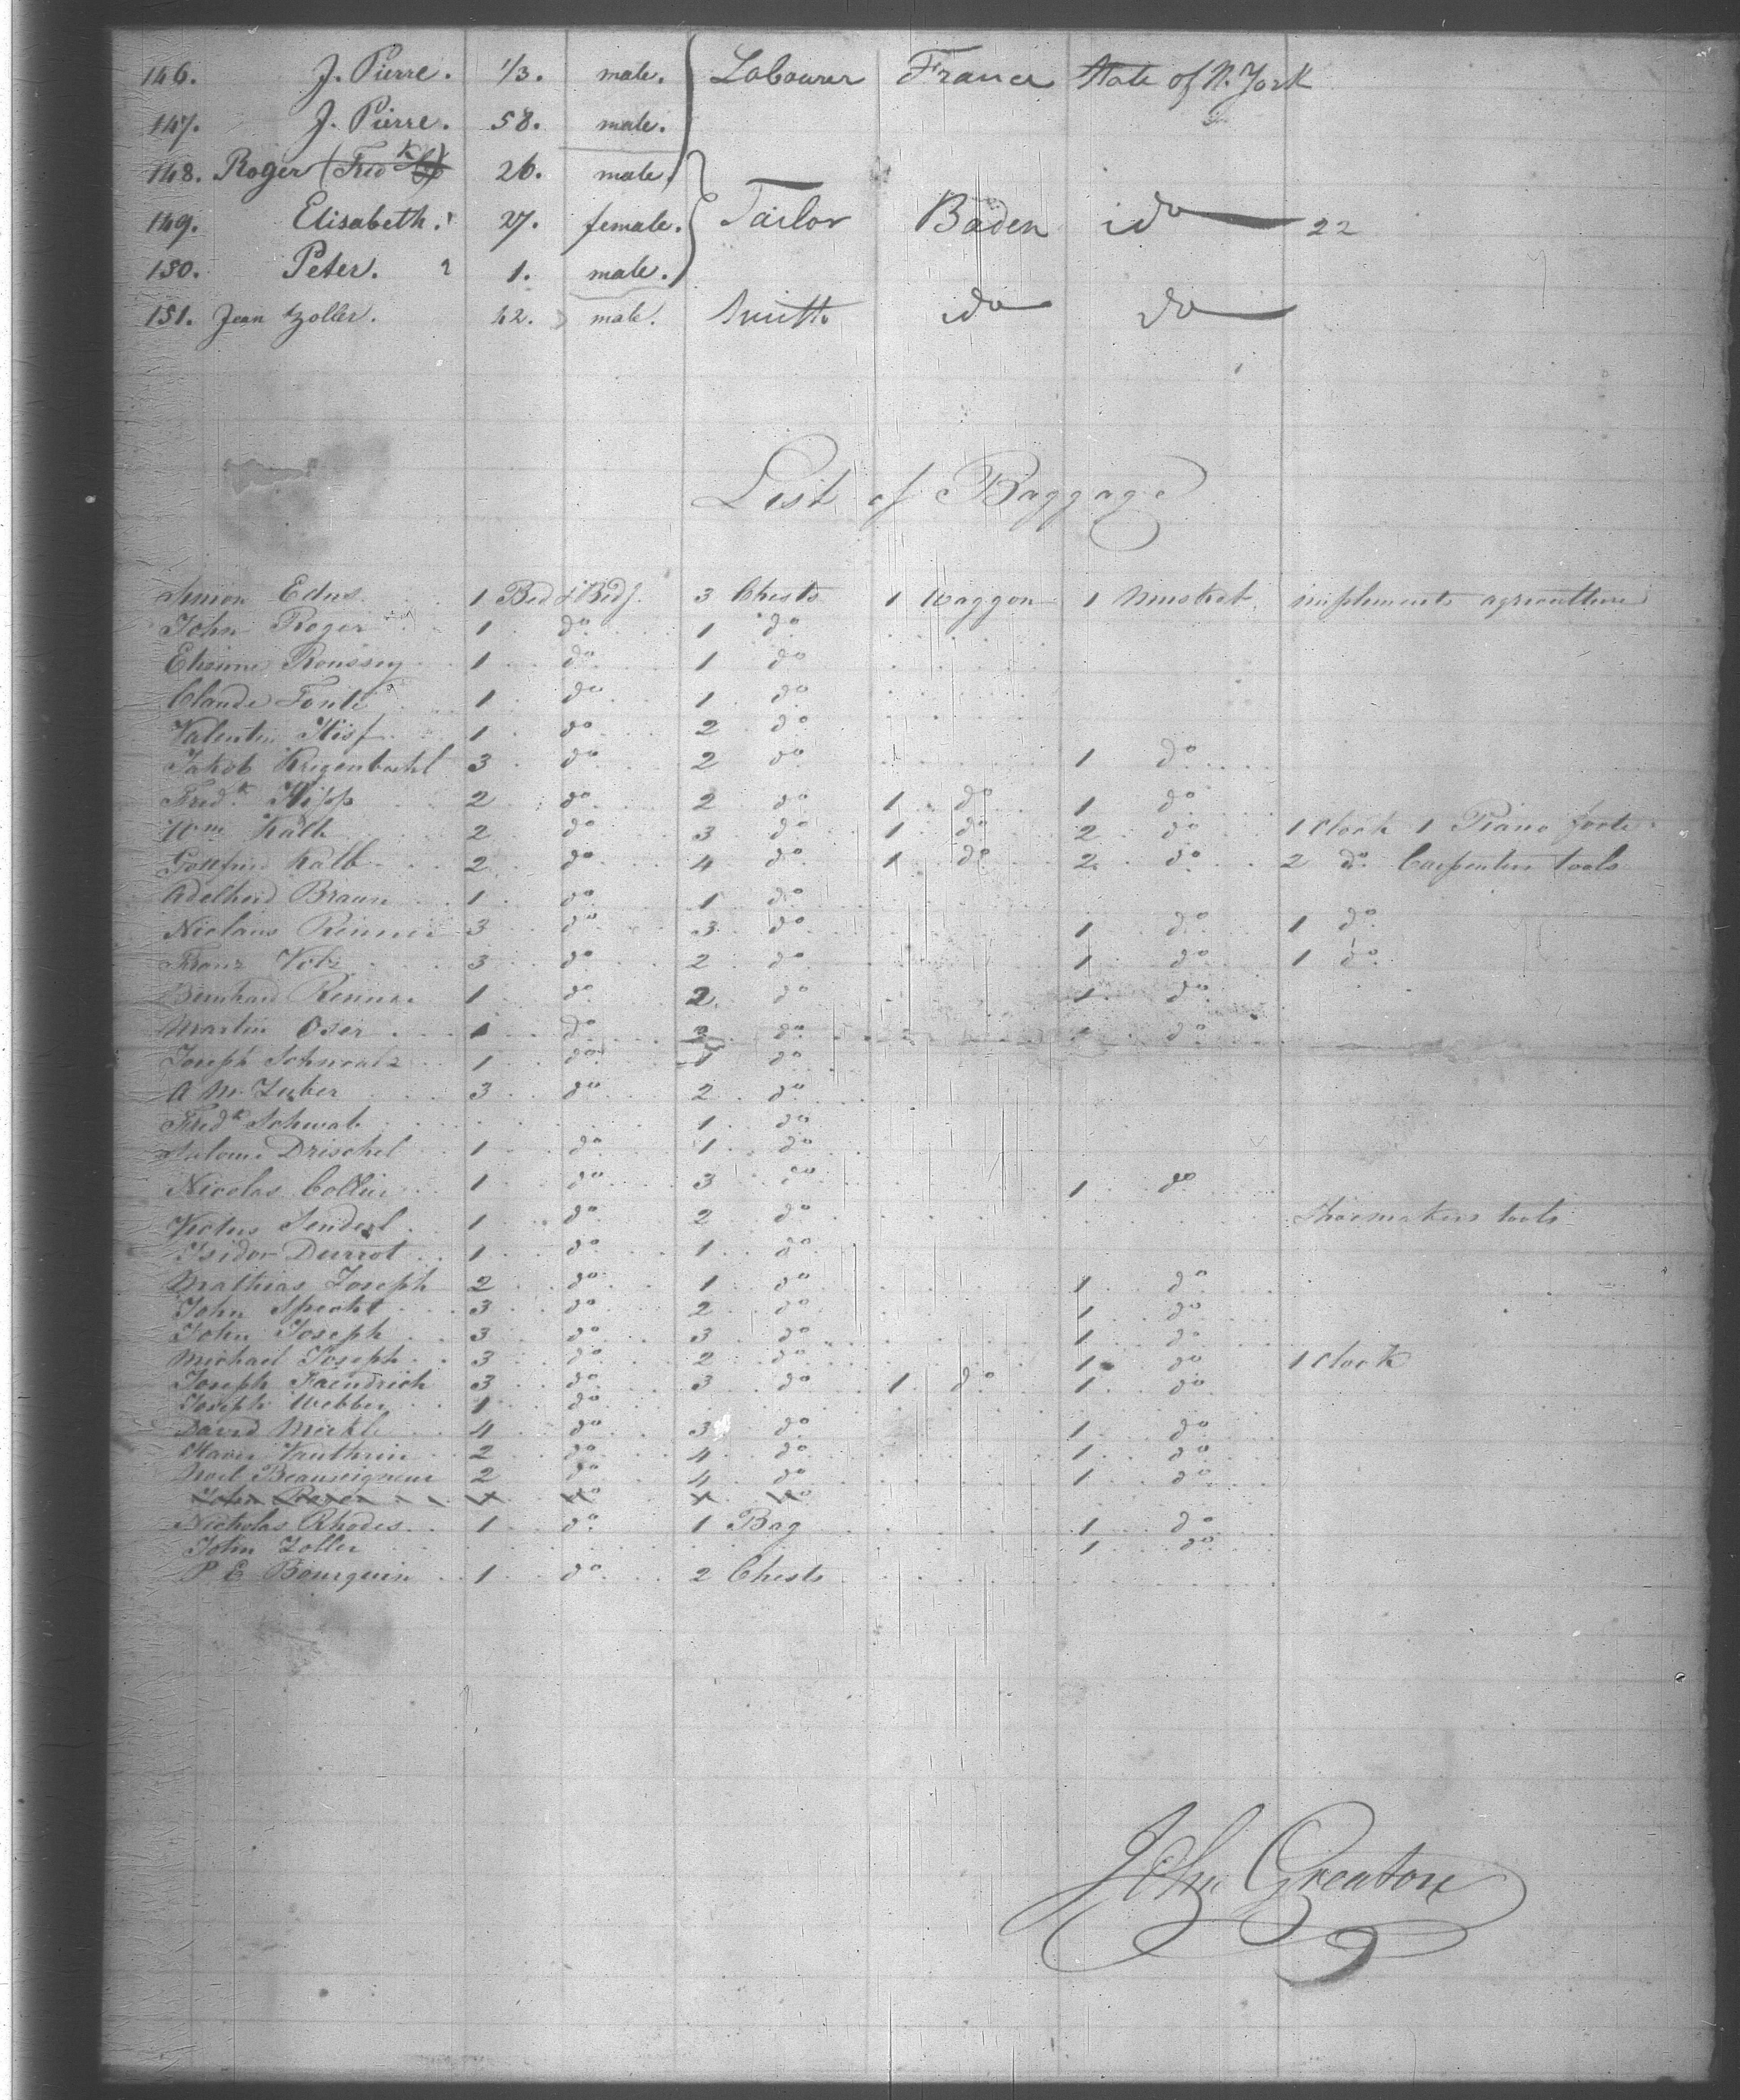 146. J. Pierre. 1/3. male. Labourer France State of N. York
147. J. Pierre. 58. male.
148. Roger (Fredk) 26. male.
149. Elisabeth. 27. female. Tailor Baden do 22
150. Peter. 1. male.
151. Jean Zoller. 42. male. Smith do do
List of Baggage
Simon Edus 1 Bed & Bedg. 3 Chests 1 Waggon 1 Musket implements agriculture
John Roger 1 do 1 do
Etienne Roussey 1 do 1 do
Claude Fonti 1 do 1 do
Valentin 1 do 2 do
Jakob Krigenbuehl 3 do 2 do 1 do
Fredk Hipp 2 do 2 do 1 do 1 do
Wm Kalb 2 do 3 do 1 do 2 do 1 Clock 1 Piano forte
Kalb 2 do 4 do 1 do 2 do 2 do Carpenters tools
Adelheid Braun 1 do 1 do
Niclaus Renner 3 do 3 do 1 do 1 do
Franz Volz 3 do 2 do 1 do 1 do
Bernhard Renner 1 do 2 do 1 do
Martin Oser 1 do 3 do 1 do
Joseph Schwalz 1 do 1 do
A M Zuber 3 do 2 do
Fredk Schwab 1 do
Salome Drischel 1 do 1 do
Nicolas Collin 1 do 3 do 1 do
Victus Senderl 1 do 2 do Shoemakers tools
Isidor Durrot 1 do 1 do
Mathias Joseph 2 do 1 do 1 do
John Specht 3 do 2 do 1 do
John Joseph 3 do 3 do 1 do
Michael Joseph 3 do 2 do 1 do 1 Clock
Joseph Faendrich 3 do 3 do 1 do 1 do
Joseph Webber 1 do
David Meckl 4 do 3 do 1 do
Xavier Vauthrin 2 do 4 do 1 do
Noel Beauseigneur 2 do 4 do 1 do
John Roger do do
Nicholas Rhodes 1 do 1 Bag 1 do
John Zoller 1 do
P E Bourquin 1 do 2 Chests
John Greaton